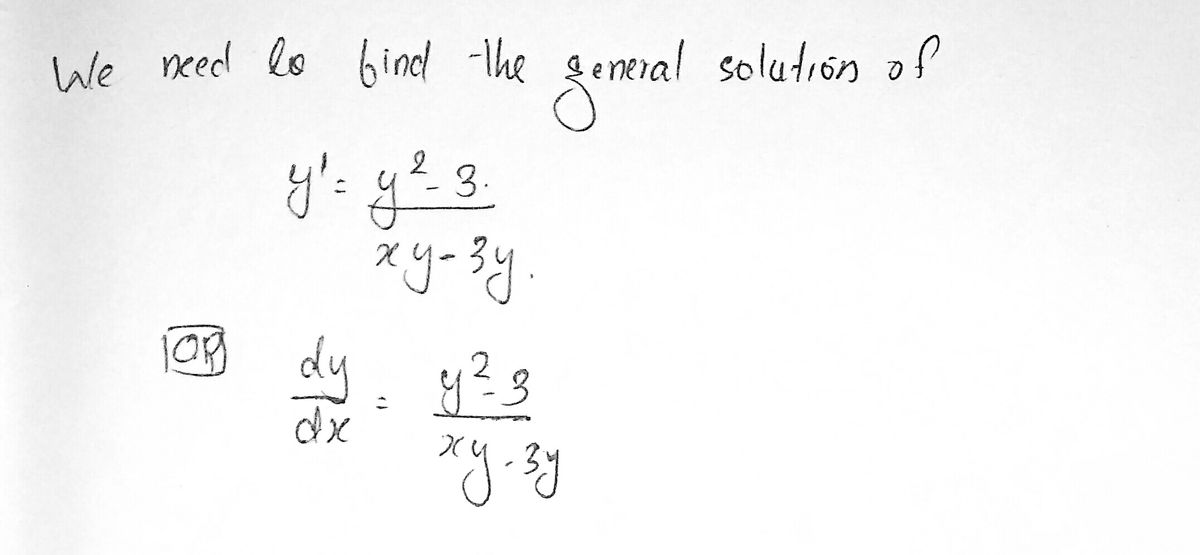 We need to find the general solution of
y' = y² - 3.
xy - 3y.
OR dy/dx = y² - 3
xy - 3y